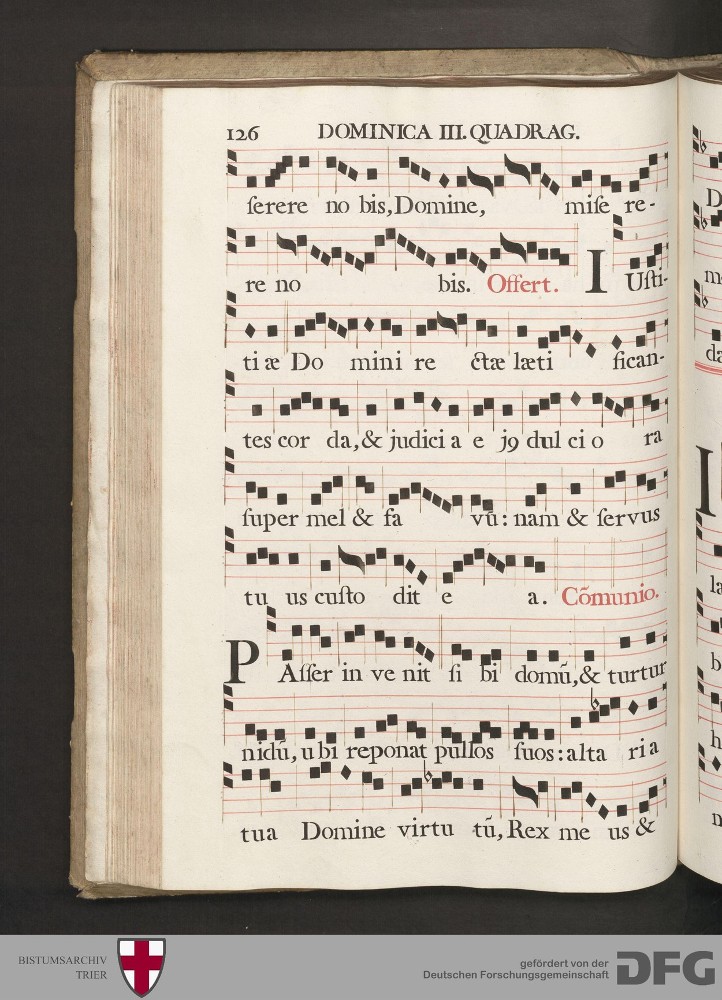 126 DOMINICA III. QUADRAG.
ſerere no bis, Domine, miſe re-
re no bis. Offert. I Uſti-
ti æ Do mini re ctæ læti fican-
tes cor da, & judici a e j9 dul ci o ra
ſuper mel & fa vũ: nam & ſervus
tu us cuſto dit e a. Cõmunio.
P Aſſer in ve nit ſi bi domũ, & turtur
nidũ, u bi reponat pullos ſuos: alta ri a
tua Domine virtu tũ, Rex me us &
D
m
da
I
la
b
h
n
BISTUMSARCHIV
TRIER
gefördert von der
Deutschen Forschungsgemeinschaft
DFG